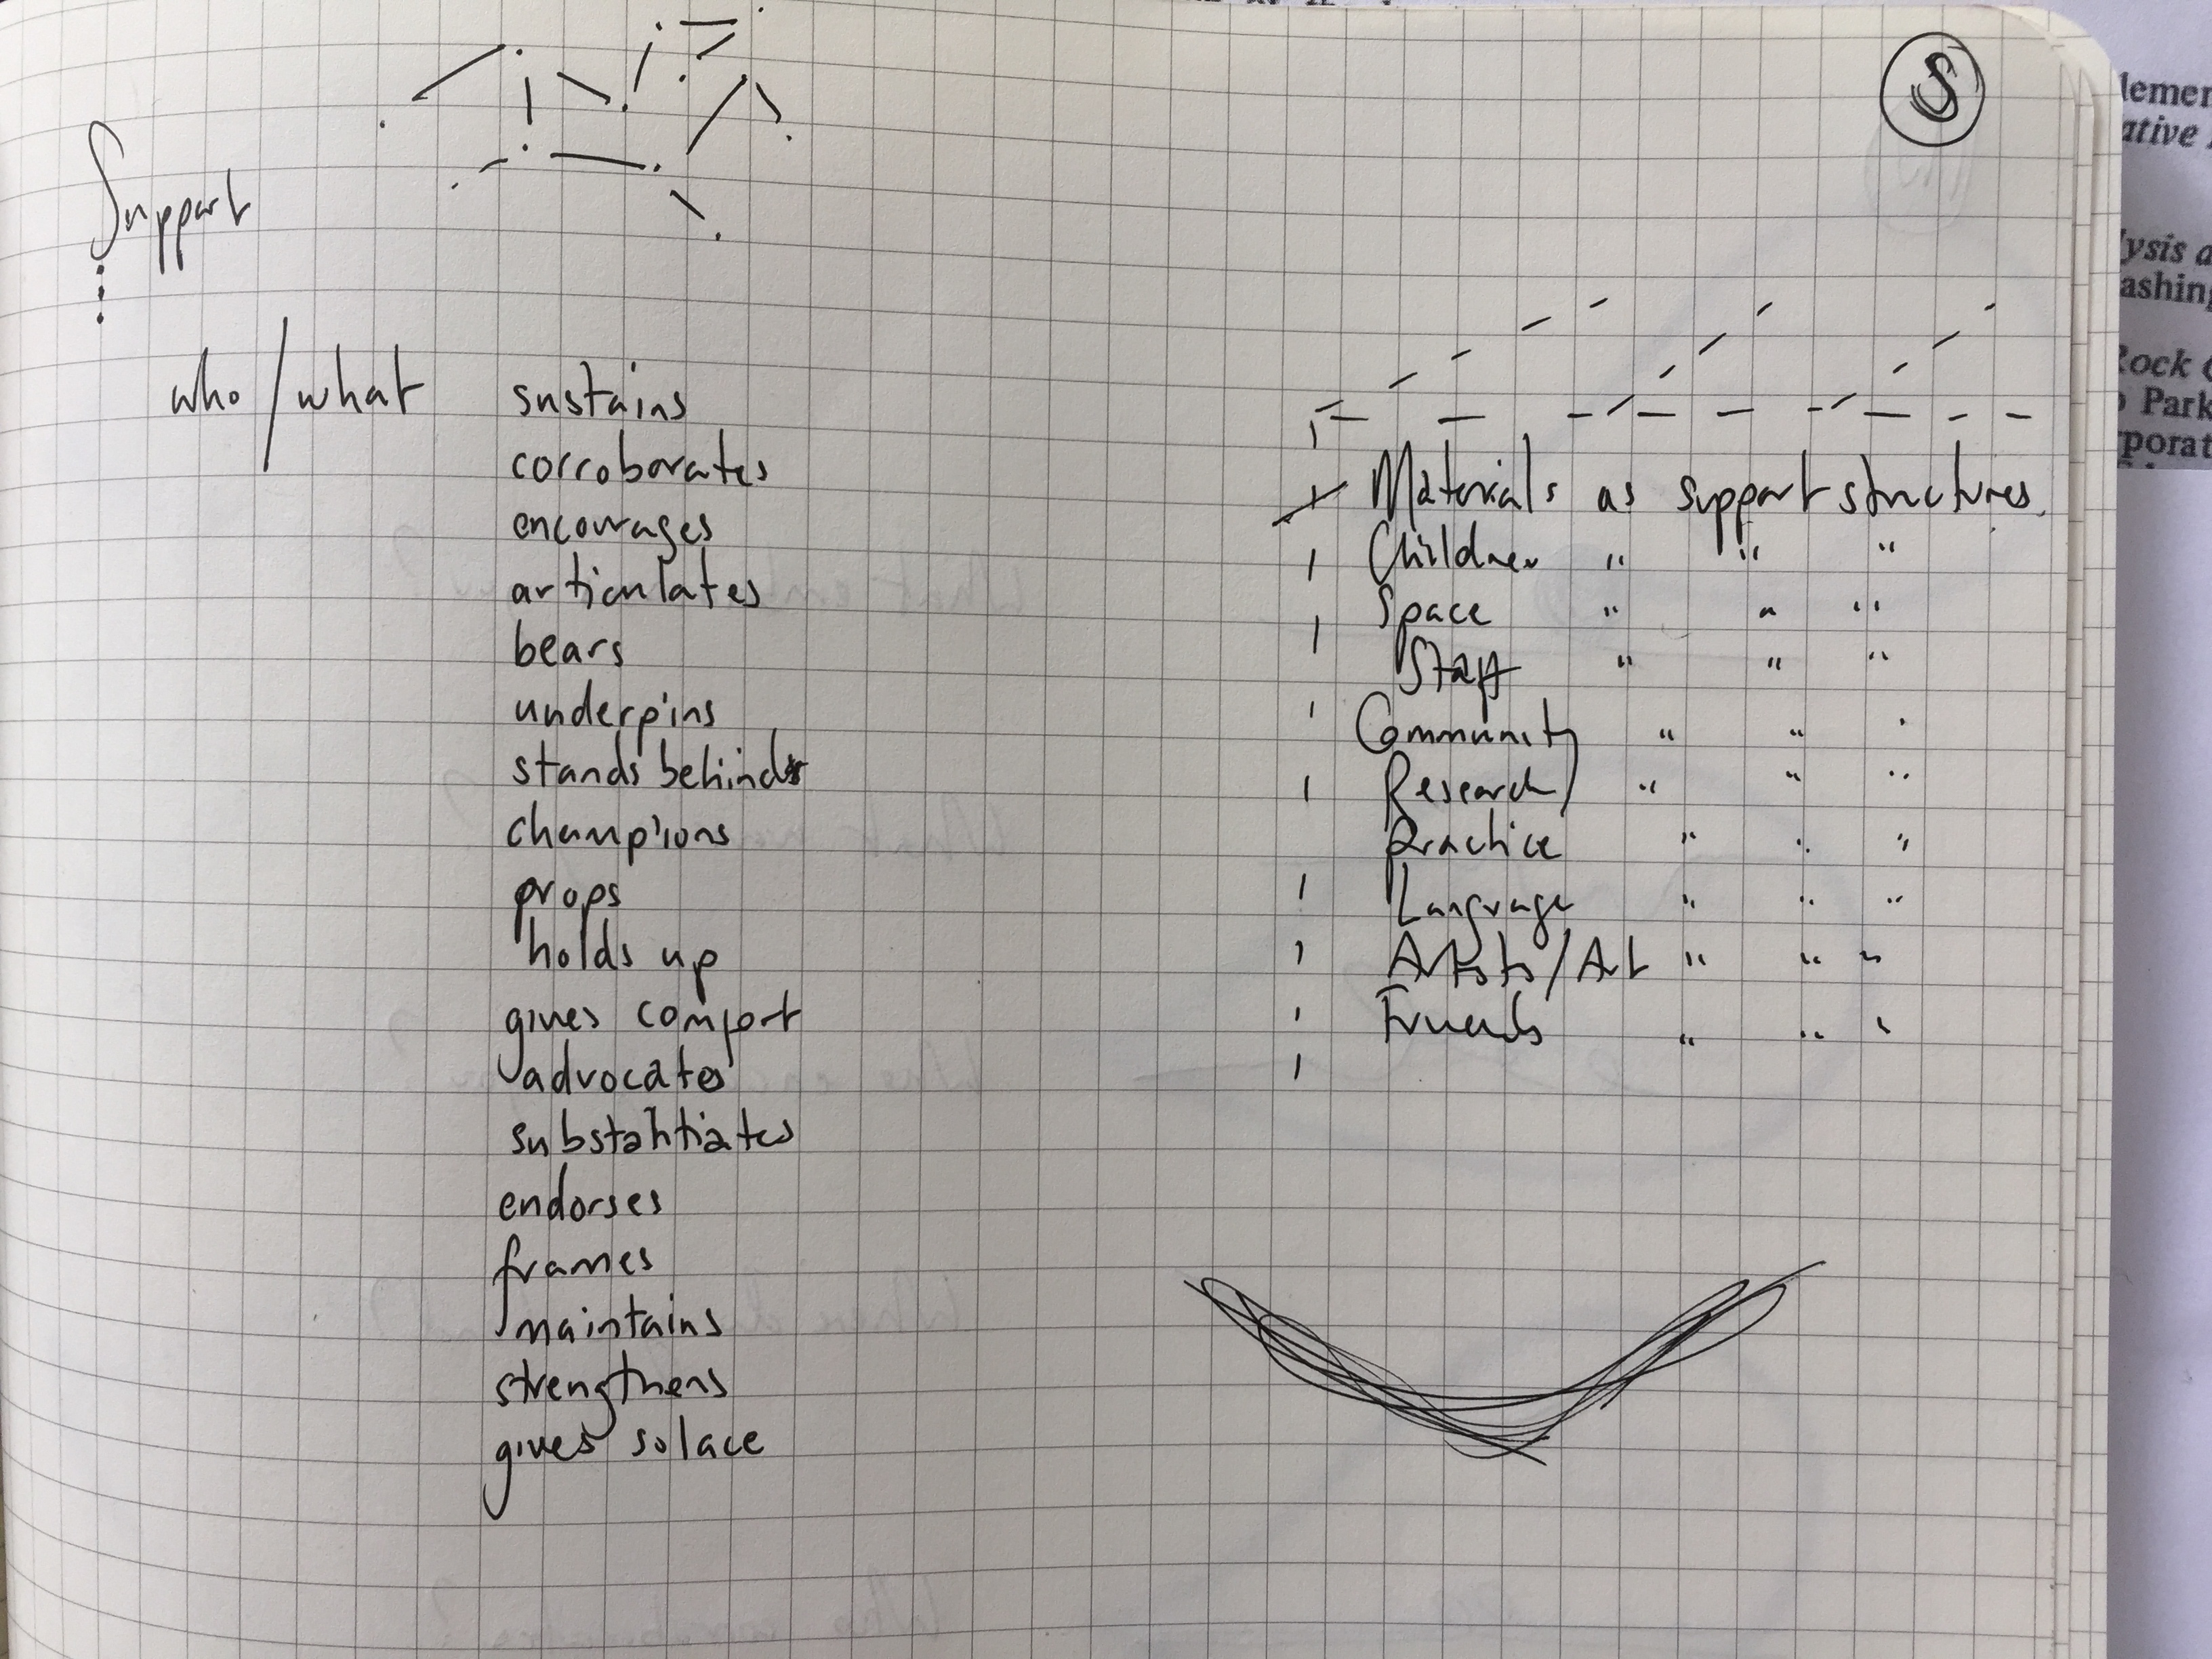 S
Support
who/what
sustains
corroborates
encourages
articulates
bears
underpins
stands behinds
champions
props
holds up
gives comfort
advocates
substantiates
endorses
frames
maintains
strengthens
gives solace
Materials as support structures.
Children " " "
Space " " "
Staff " " "
Community " " "
Research/ " " "
Practice " " "
Language " " "
Artists/Art " " "
Friends " " "
ative
ysis a
ashing
Rock
Park
porat